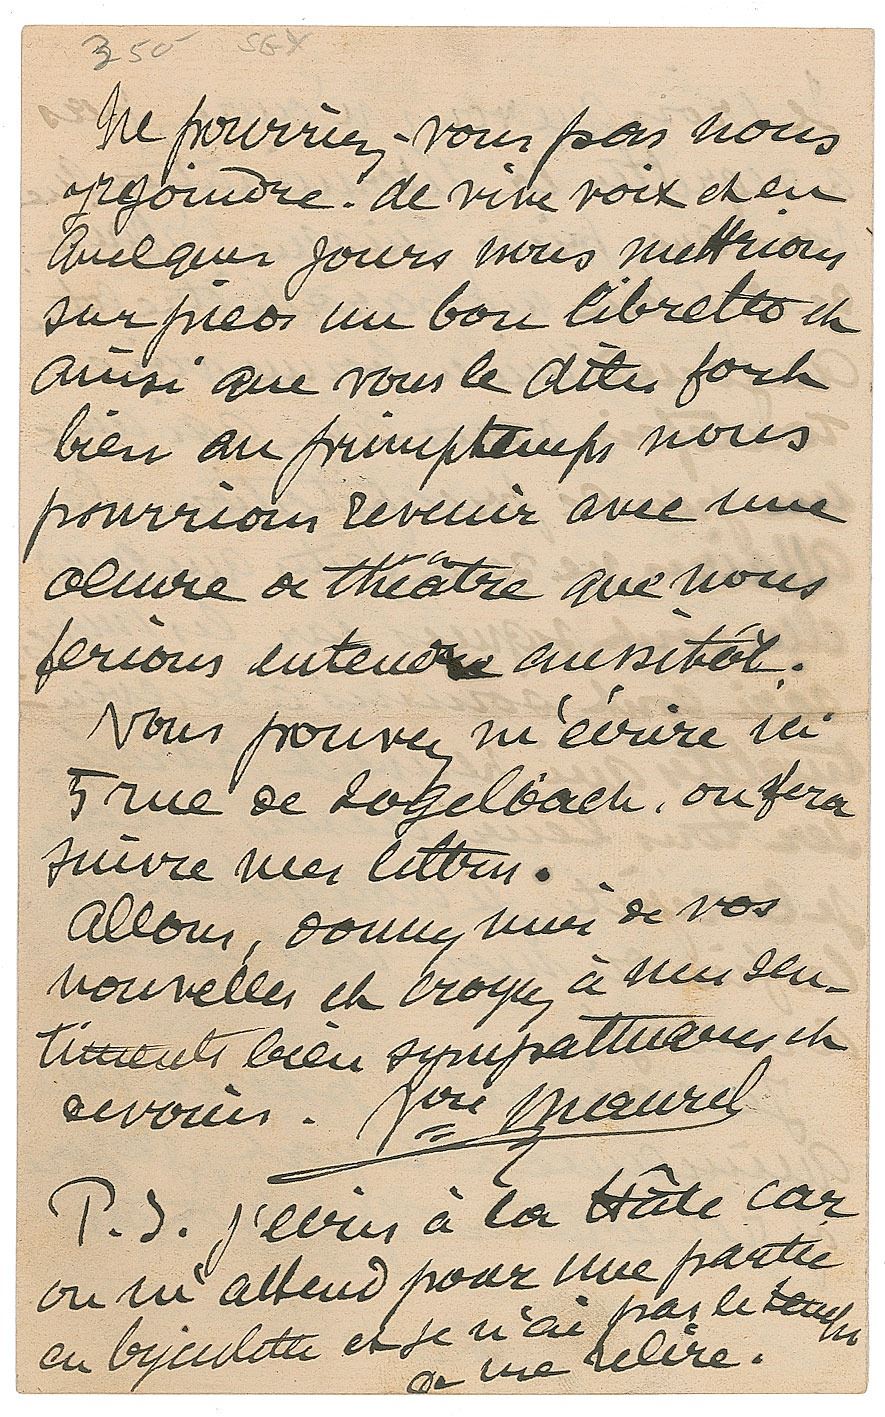 350 SGX
Ne pourriez-vous pas nous
rejoindre. de vive voix et en
quelques jours nous mettrions
sur pieds un bon libretto et
ainsi que vous le dites fort
bien au primptemps nous
pourrions revenir avec une
oeuvre de théâtre que nous
ferions entendre aussitôt.
Vous pouvez m'écrire ici
5 rue de Logelbach. on fera
suivre mes lettres.
Allons, donnez moi de vos
nouvelles et croyez à mes sen-
timents bien sympathiques et
dévoués. Maurel
P.S. j'écris à la hâte car
on m'attend pour une partie
en bicyclette et je n'ai pas le temps
de me relire.